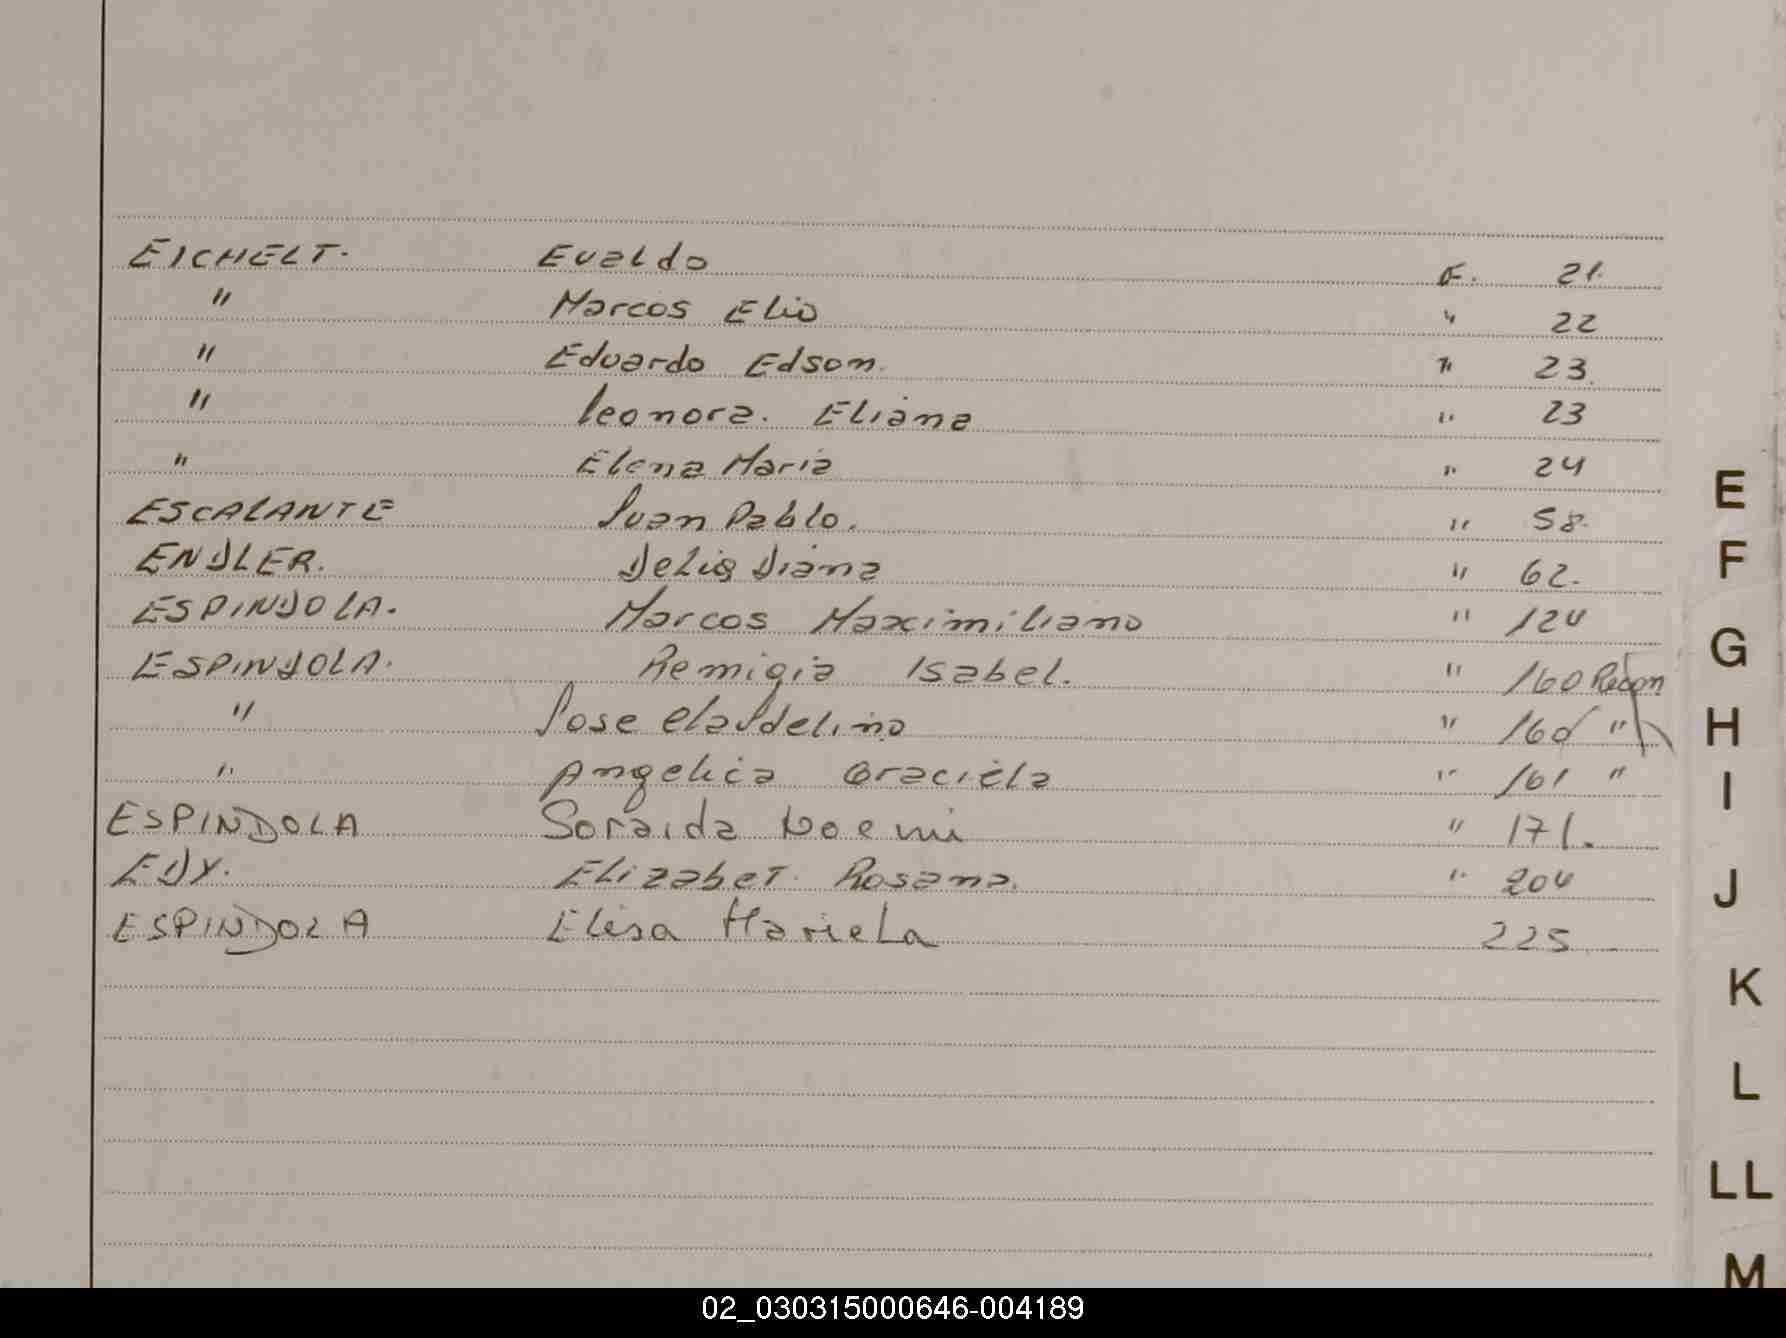 EICHELT. Evaldo F. 21.
" Marcos Elio " 22
" Eduardo Edson. " 23.
" Leonora. Eliana " 23
" Elena Maria " 24
ESCALANTE Juan Pablo. " 58.
ENDLER. Delia Diana " 62.
ESPINDOLA. Marcos Maximiliano " 124
ESPINDOLA. Remigia Isabel. " 160 Recon
" Jose " 160 "
" Angelica Graciela " 161 "
ESPINDOLA Soraida Noemi " 171.
EDY. Elizabet. Rosana. " 204
ESPINDOLA Elisa Mariela 225
E
F
G
H
I
J
K
L
LL
M
02_030315000646-004189